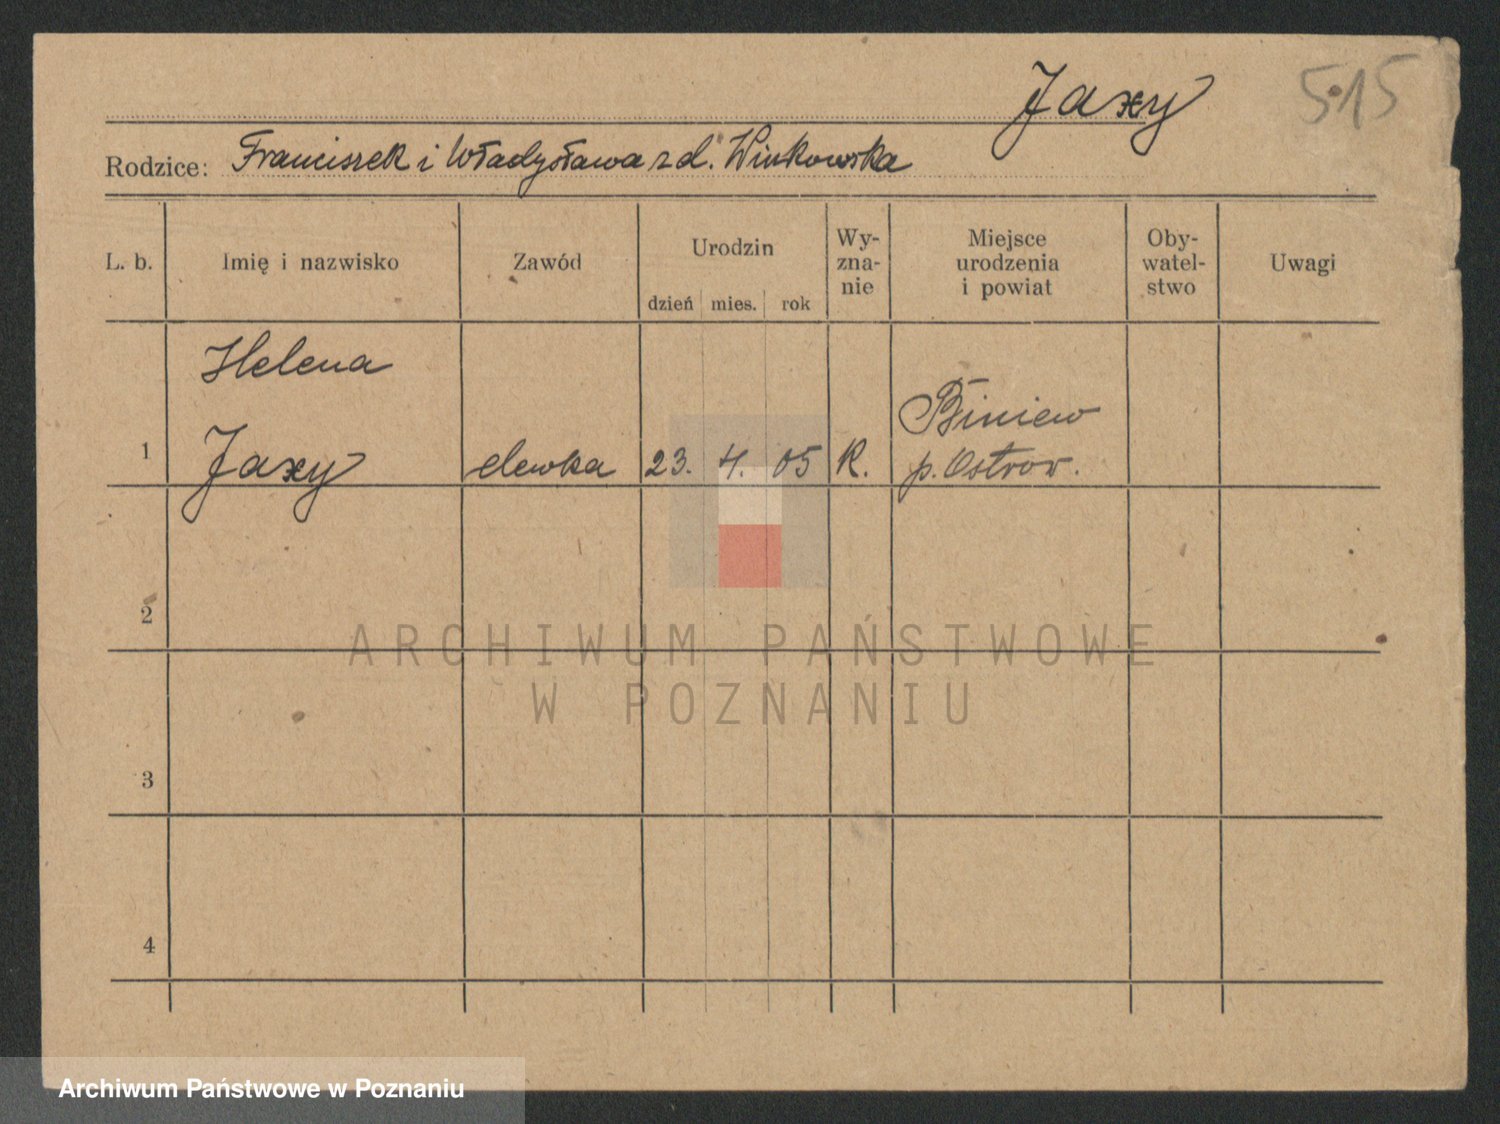 Jaxy 515
Rodzice: Franciszek i Władysława z d. Winkowska
L. b. Imię i nazwisko Zawód Urodzin dzień mies. rok Wy-zna-nie Miejsce urodzenia i powiat Oby-watel-stwo Uwagi
Helena
Biniew
1 Jaxy elewka 23. 4. 05 K. p. Ostrow.
2
ARCHIWUM PAŃSTWOWE
W POZNANIU
3
4
Archiwum Państwowe w Poznaniu